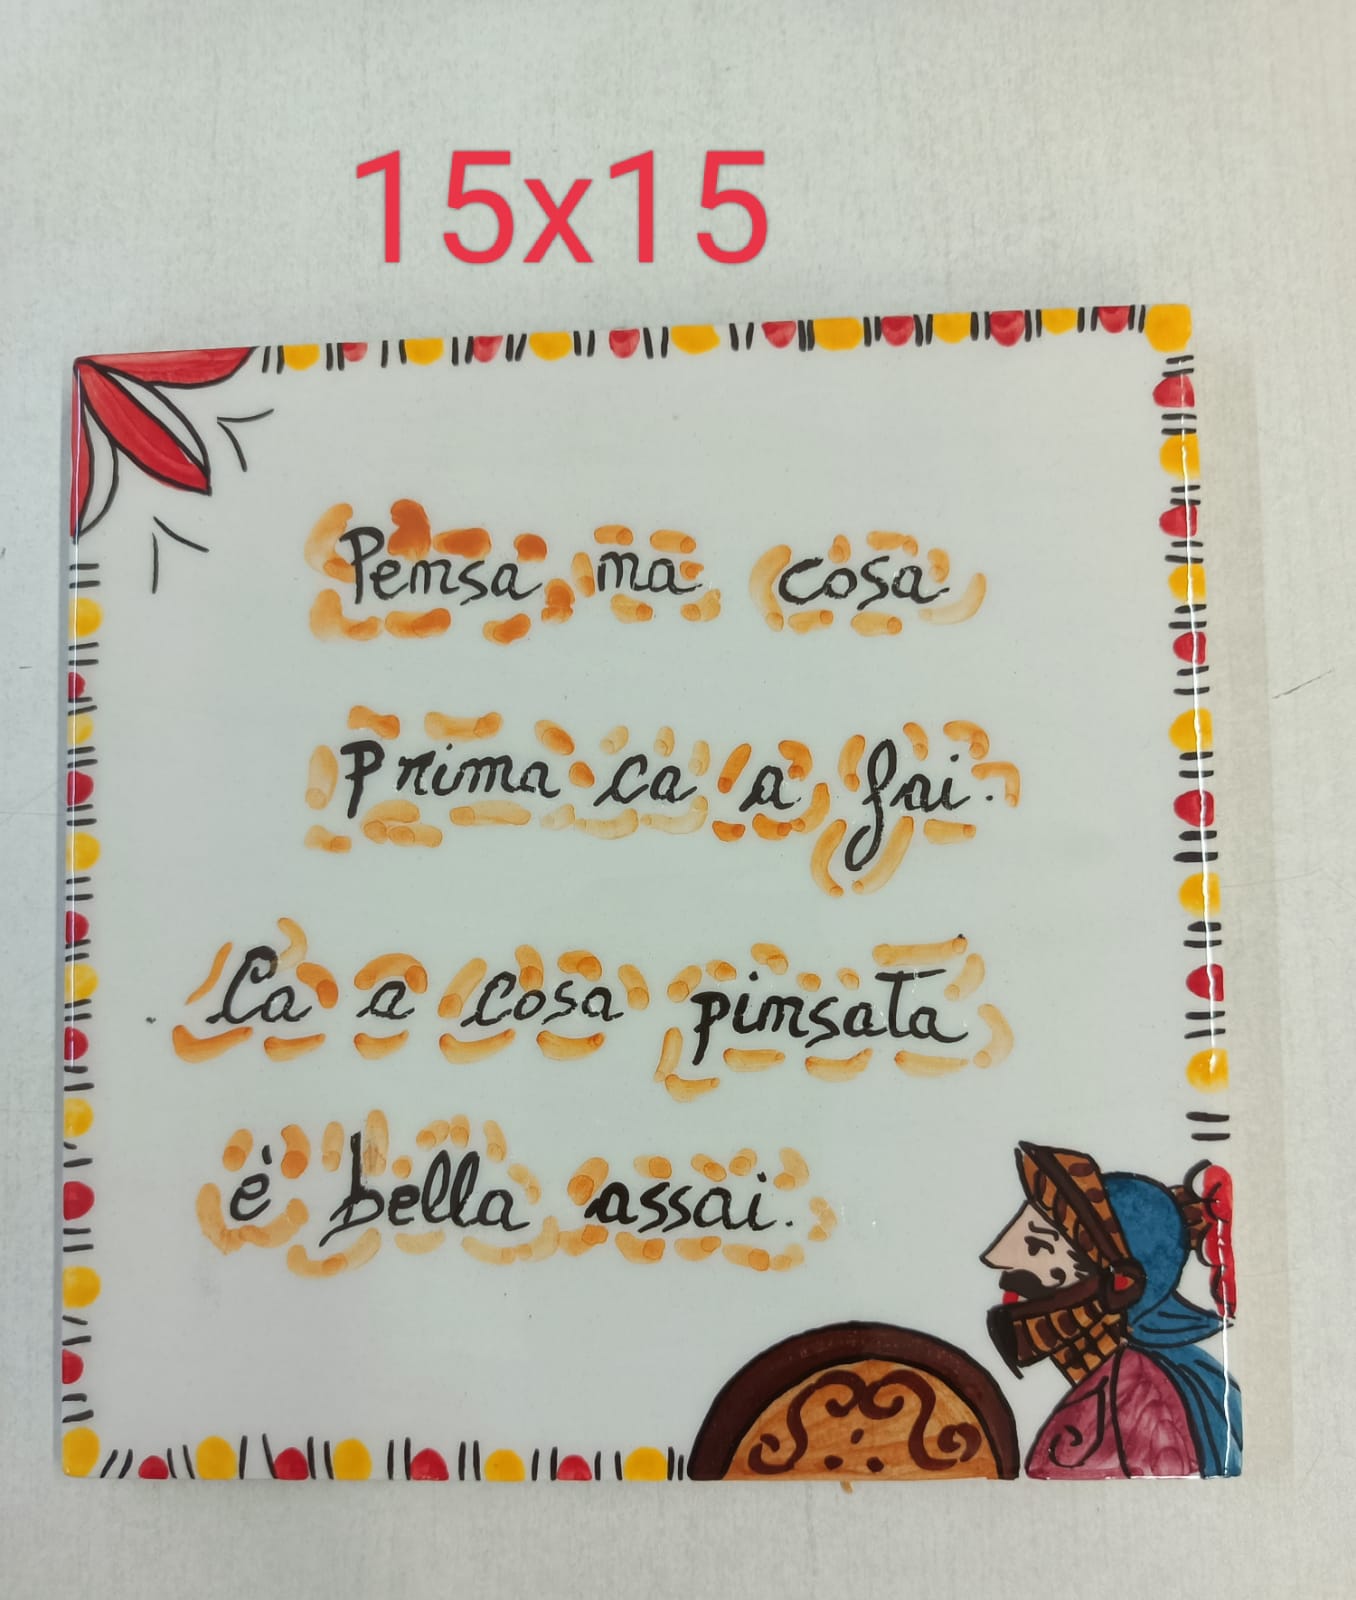 15x15
Pensa na cosa
Prima ca a fai.
Ca a cosa pinsata
è bella assai.